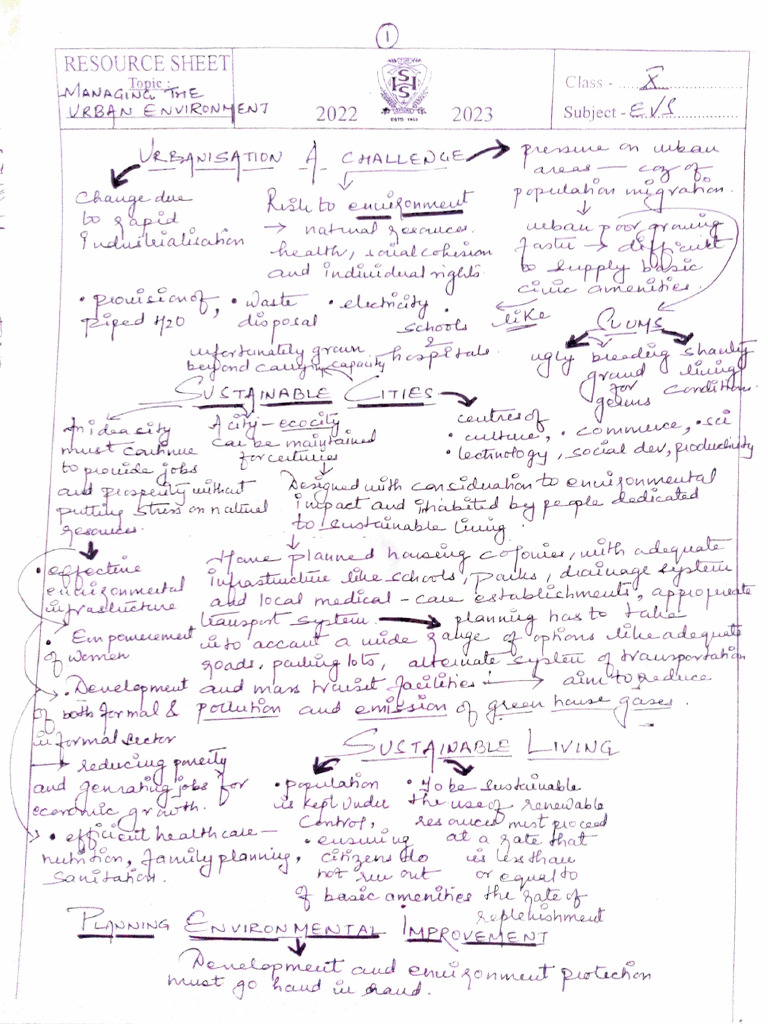 1
RESOURCE SHEET
Topic :
MANAGING THE
URBAN ENVIRONMENT
2022
SHS
ESTD
2023
Class - X
Subject - EVS
URBANISATION A CHALLENGE
pressure on urban
areas — coz of
population migration.
Change due
to rapid
industrialisation
Risk to environment
→ natural resources
health, social cohesion
and individual rights.
urban poor growing
faster → difficult
to supply basic
civic amenities.
• provision of
piped H2O
• waste
disposal
• electricity
• schools
&
hospitals.
like
unfortunately grown
beyond carrying capacity
SLUMS
ugly
breeding
ground
for
germs
shanty
living
conditions.
SUSTAINABLE CITIES
An idea city
must continue
to provide jobs
and prosperity without
putting stress on natural
resources.
A city - ecocity
can be maintained
for centuries
centres of
• culture, • commerce, • sci
• technology, social dev, productivity
Designed with consideration to environmental
impact and inhabited by people dedicated
to sustainable living.
Have planned housing colonies, with adequate
infrastructure like schools, parks, drainage system
and local medical - care establishments, appropriate
transport system. → planning has to take
into accant a wide range of options like adequate
roads, parking lots, alternate system of transportation
and mass transit facilities → aim to reduce
pollution and emission of green house gases.
• effective
environmental
infrastructure
• Empowerment
of women
• Development
of both formal &
informal sector
→ reducing poverty
and genrating jobs for
economic growth.
• efficient healthcare —
nutrition, family planning,
sanitation.
SUSTAINABLE LIVING
• population
is kept under
control,
• ensuring
citizens do
not run out
of basic amenities
• To be sustainable
the use of renewable
resources must proceed
at a rate that
is less than
or equal to
the rate of
replenishment
PLANNING ENVIRONMENTAL IMPROVEMENT
Development and environment protection
must go hand in hand.